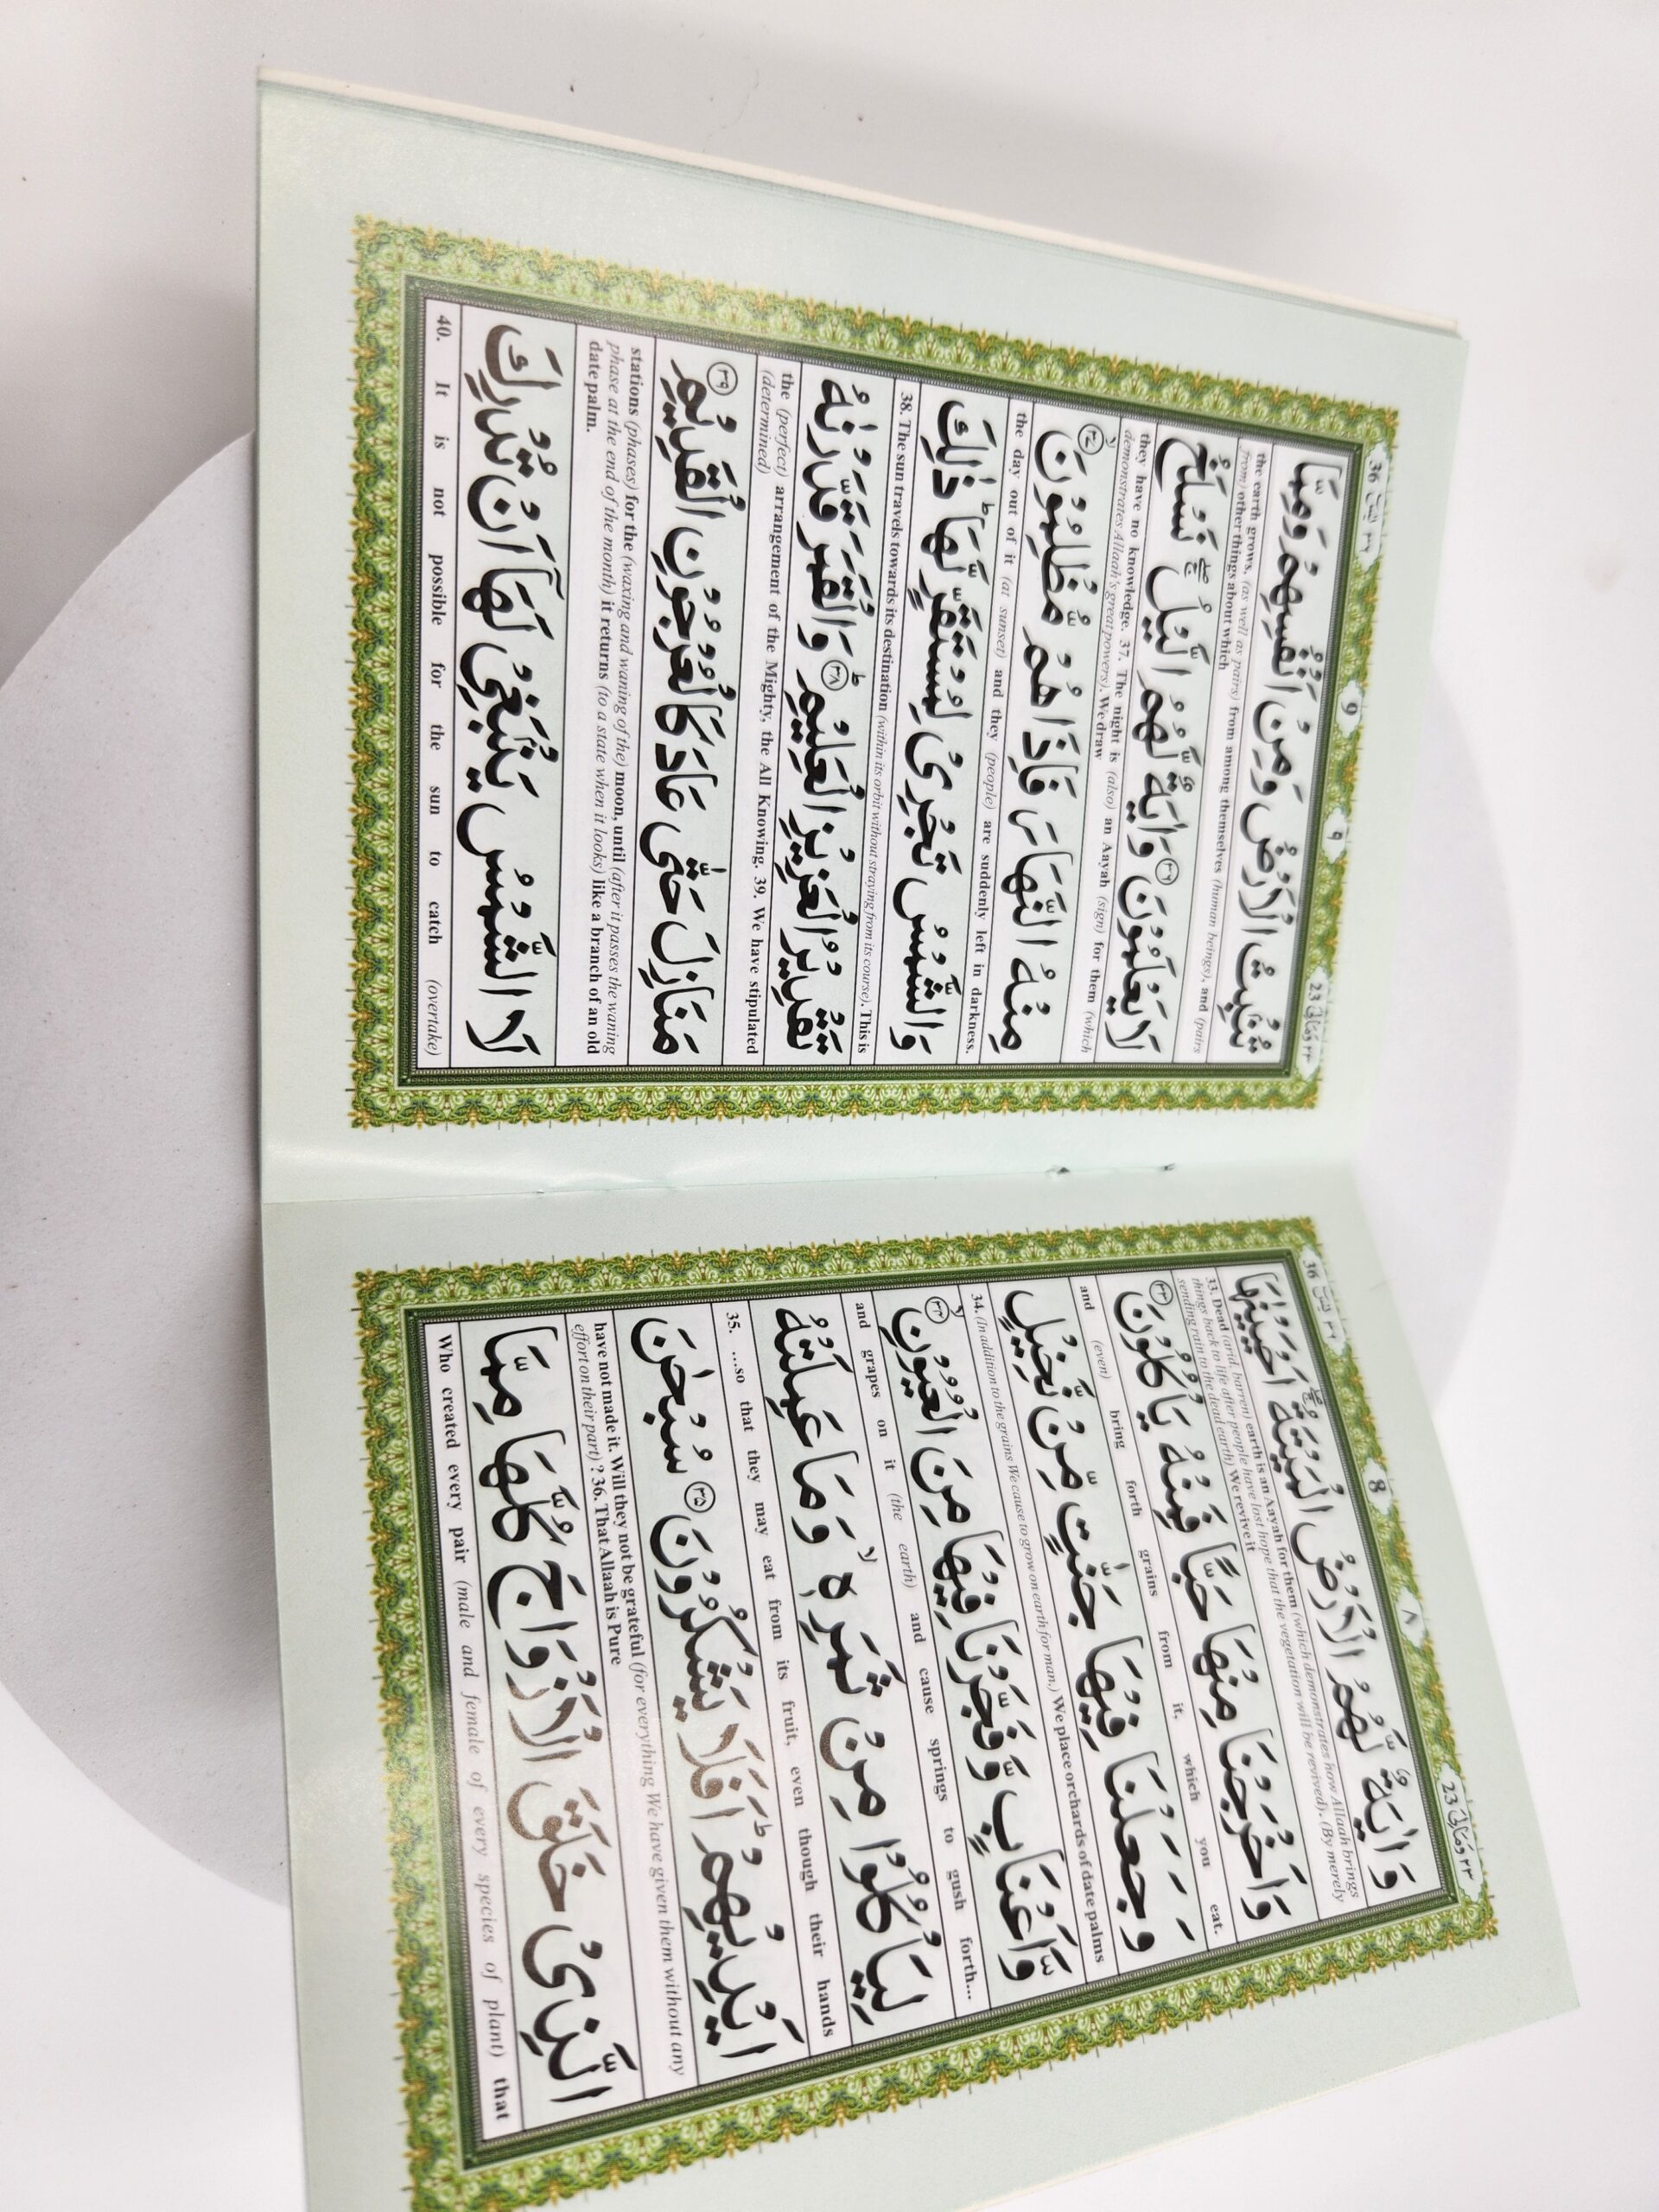 36 يٰسٓ ٣٦ 8 ٨ 23 وَمَالِيَ ٢٣
وَاٰيَةٌ لَّهُمُ الْاَرْضُ الْمَيْتَةُ ۖۚ اَحْيَيْنٰهَا
33. Dead (arid, barren) earth is an Aayah for them (which demonstrates how Allaah brings
things back to life after people have lost hope that the vegetation will be revived). (By merely
sending rain to the dead earth) We revive it
وَاَخْرَجْنَا مِنْهَا حَبًّا فَمِنْهُ يَاْكُلُوْنَ ﴿٣٣﴾
and (even) bring forth grains from it, which you eat.
وَجَعَلْنَا فِيْهَا جَنّٰتٍ مِّنْ نَّخِيْلٍ
34. (In addition to the grains We cause to grow on earth for man,) We place orchards of date palms
وَّاَعْنَابٍ وَّفَجَّرْنَا فِيْهَا مِنَ الْعُيُوْنِ ﴿٣٤﴾ۙ
and grapes on it (the earth) and cause springs to gush forth…
لِيَاْكُلُوْا مِنْ ثَمَرِهٖ ۙ وَمَا عَمِلَتْهُ
35. …so that they may eat from its fruit, even though their hands
اَيْدِيْهِمْ ؕ اَفَلَا يَشْكُرُوْنَ ﴿٣٥﴾ سُبْحٰنَ
have not made it. Will they not be grateful (for everything We have given them without any
effort on their part) ? 36. That Allaah is Pure
الَّذِىْ خَلَقَ الْاَزْوَاجَ كُلَّهَا مِمَّا
Who created every pair (male and female of every species of plant) that
36 يٰسٓ ٣٦ 9 ٩ 23 وَمَالِيَ ٢٣
تُنْۢبِتُ الْاَرْضُ وَمِنْ اَنْفُسِهِمْ وَمِمَّا
the earth grows, (as well as pairs) from among themselves (human beings), and (pairs
from) other things about which
لَا يَعْلَمُوْنَ ﴿٣٦﴾ وَاٰيَةٌ لَّهُمُ الَّيْلُ ۖۚ نَسْلَخُ
they have no knowledge. 37. The night is (also) an Aayah (sign) for them (which
demonstrates Allaah's great powers). We draw
مِنْهُ النَّهَارَ فَاِذَا هُمْ مُّظْلِمُوْنَ ﴿٣٧﴾ۙ
the day out of it (at sunset) and they (people) are suddenly left in darkness.
وَالشَّمْسُ تَجْرِىْ لِمُسْتَقَرٍّ لَّهَا ؕ ذٰلِكَ
38. The sun travels towards its destination (within its orbit without straying from its course). This is
تَقْدِيْرُ الْعَزِيْزِ الْعَلِيْمِ ﴿٣٨﴾ؕ وَالْقَمَرَ قَدَّرْنٰهُ
the (perfect) arrangement of the Mighty, the All Knowing. 39. We have stipulated
(determined)
مَنَازِلَ حَتّٰى عَادَ كَالْعُرْجُوْنِ الْقَدِيْمِ ﴿٣٩﴾
stations (phases) for the (waxing and waning of the) moon, until (after it passes the waning
phase at the end of the month) it returns (to a state when it looks) like a branch of an old
date palm.
لَا الشَّمْسُ يَنْۢبَغِىْ لَهَاۤ اَنْ تُدْرِكَ
40. It is not possible for the sun to catch (overtake)